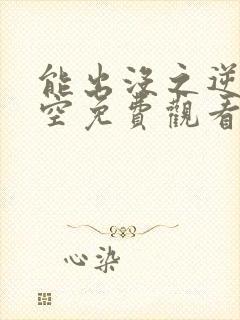 能出沒之逆
空免費觀看
心染